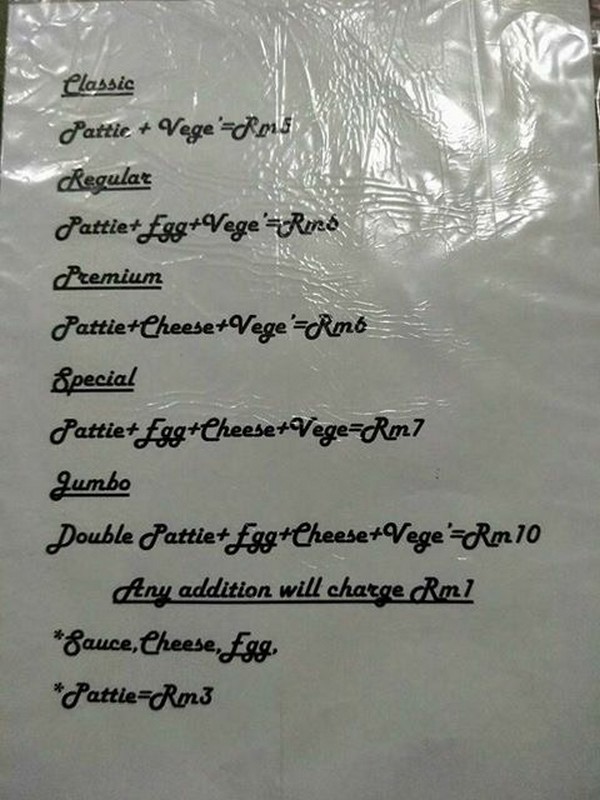 Classic
Pattie + Vege'=Rm5
Regular
Pattie+Egg+Vege'=Rm6
Premium
Pattie+Cheese+Vege'=Rm6
Special
Pattie+Egg+Cheese+Vege=Rm7
Jumbo
Double Pattie+Egg+Cheese+Vege'=Rm10
Any addition will charge Rm1
*Sauce,Cheese,Egg,
*Pattie=Rm3